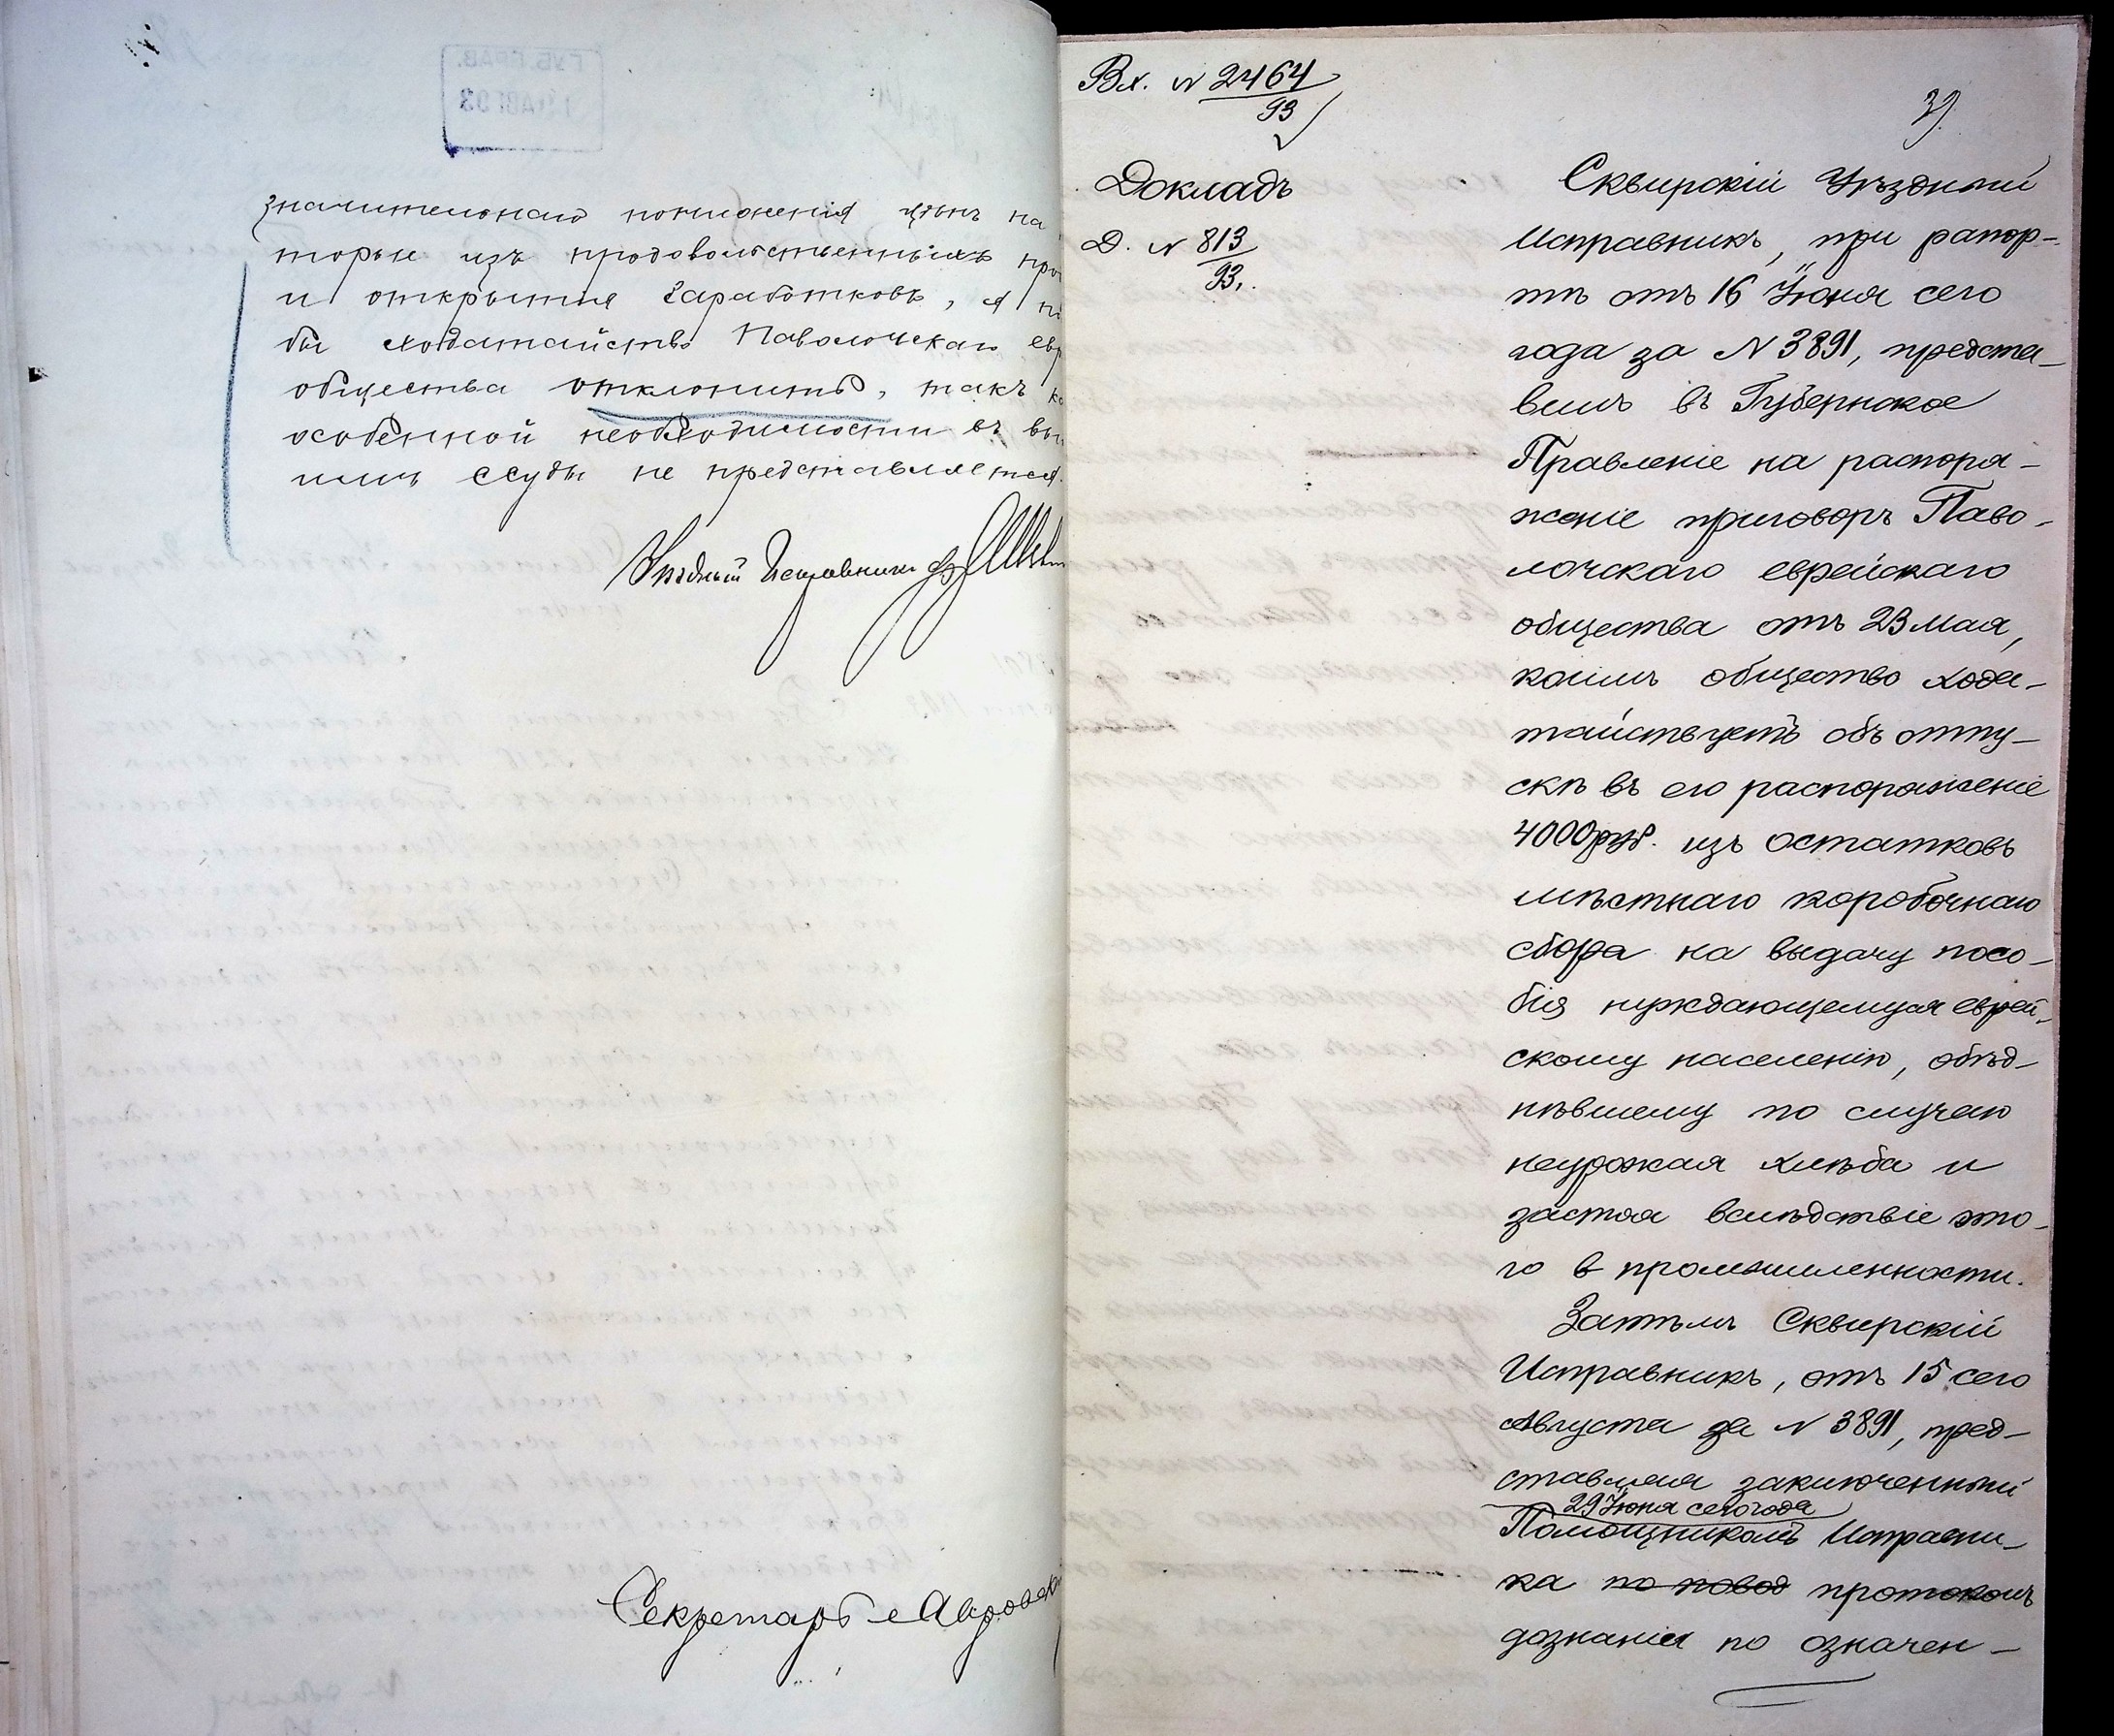 ГУБ. ПРАВ.
АВГ 93
значительнаго пониженія цѣнъ на
торые изъ продовольственныхъ про
и открытія заработковъ, я по
бы ходатайство Паволочскаго евр
общества отклонить, такъ ка
особенной необходимости въ вы
ссуды не представляется.
Уѣздный Исправникъ
Секретарь
Вх. N 2464/93
39
Докладъ
Д. N 813/93.
Сквирскій Уѣздный
Исправникъ, при рапор-
тѣ отъ 16 Іюня сего
года за N 3891, предста-
вилъ въ Губернское
Правленіе на распоря-
женіе приговоръ Паво-
лочскаго еврейскаго
общества отъ 23 мая,
коимъ общество хода-
тайствуетъ объ отпу-
скѣ въ его распоряженіе
4000 руб. изъ остатковъ
мѣстнаго коробочнаго
сбора на выдачу посо-
бія нуждающемуся еврей-
скому населенію, обѣд-
нѣвшему по случаю
неурожая хлѣба и
застоя вслѣдствіе это-
го в промышленности.
Затѣмъ Сквирскій
Исправникъ, отъ 15 сего
Августа за N 3891, пред-
ставляя заключенный
29 Іюня сего года
Помощникомъ Исправни-
ка по повод протоколъ
дознанія по означен-